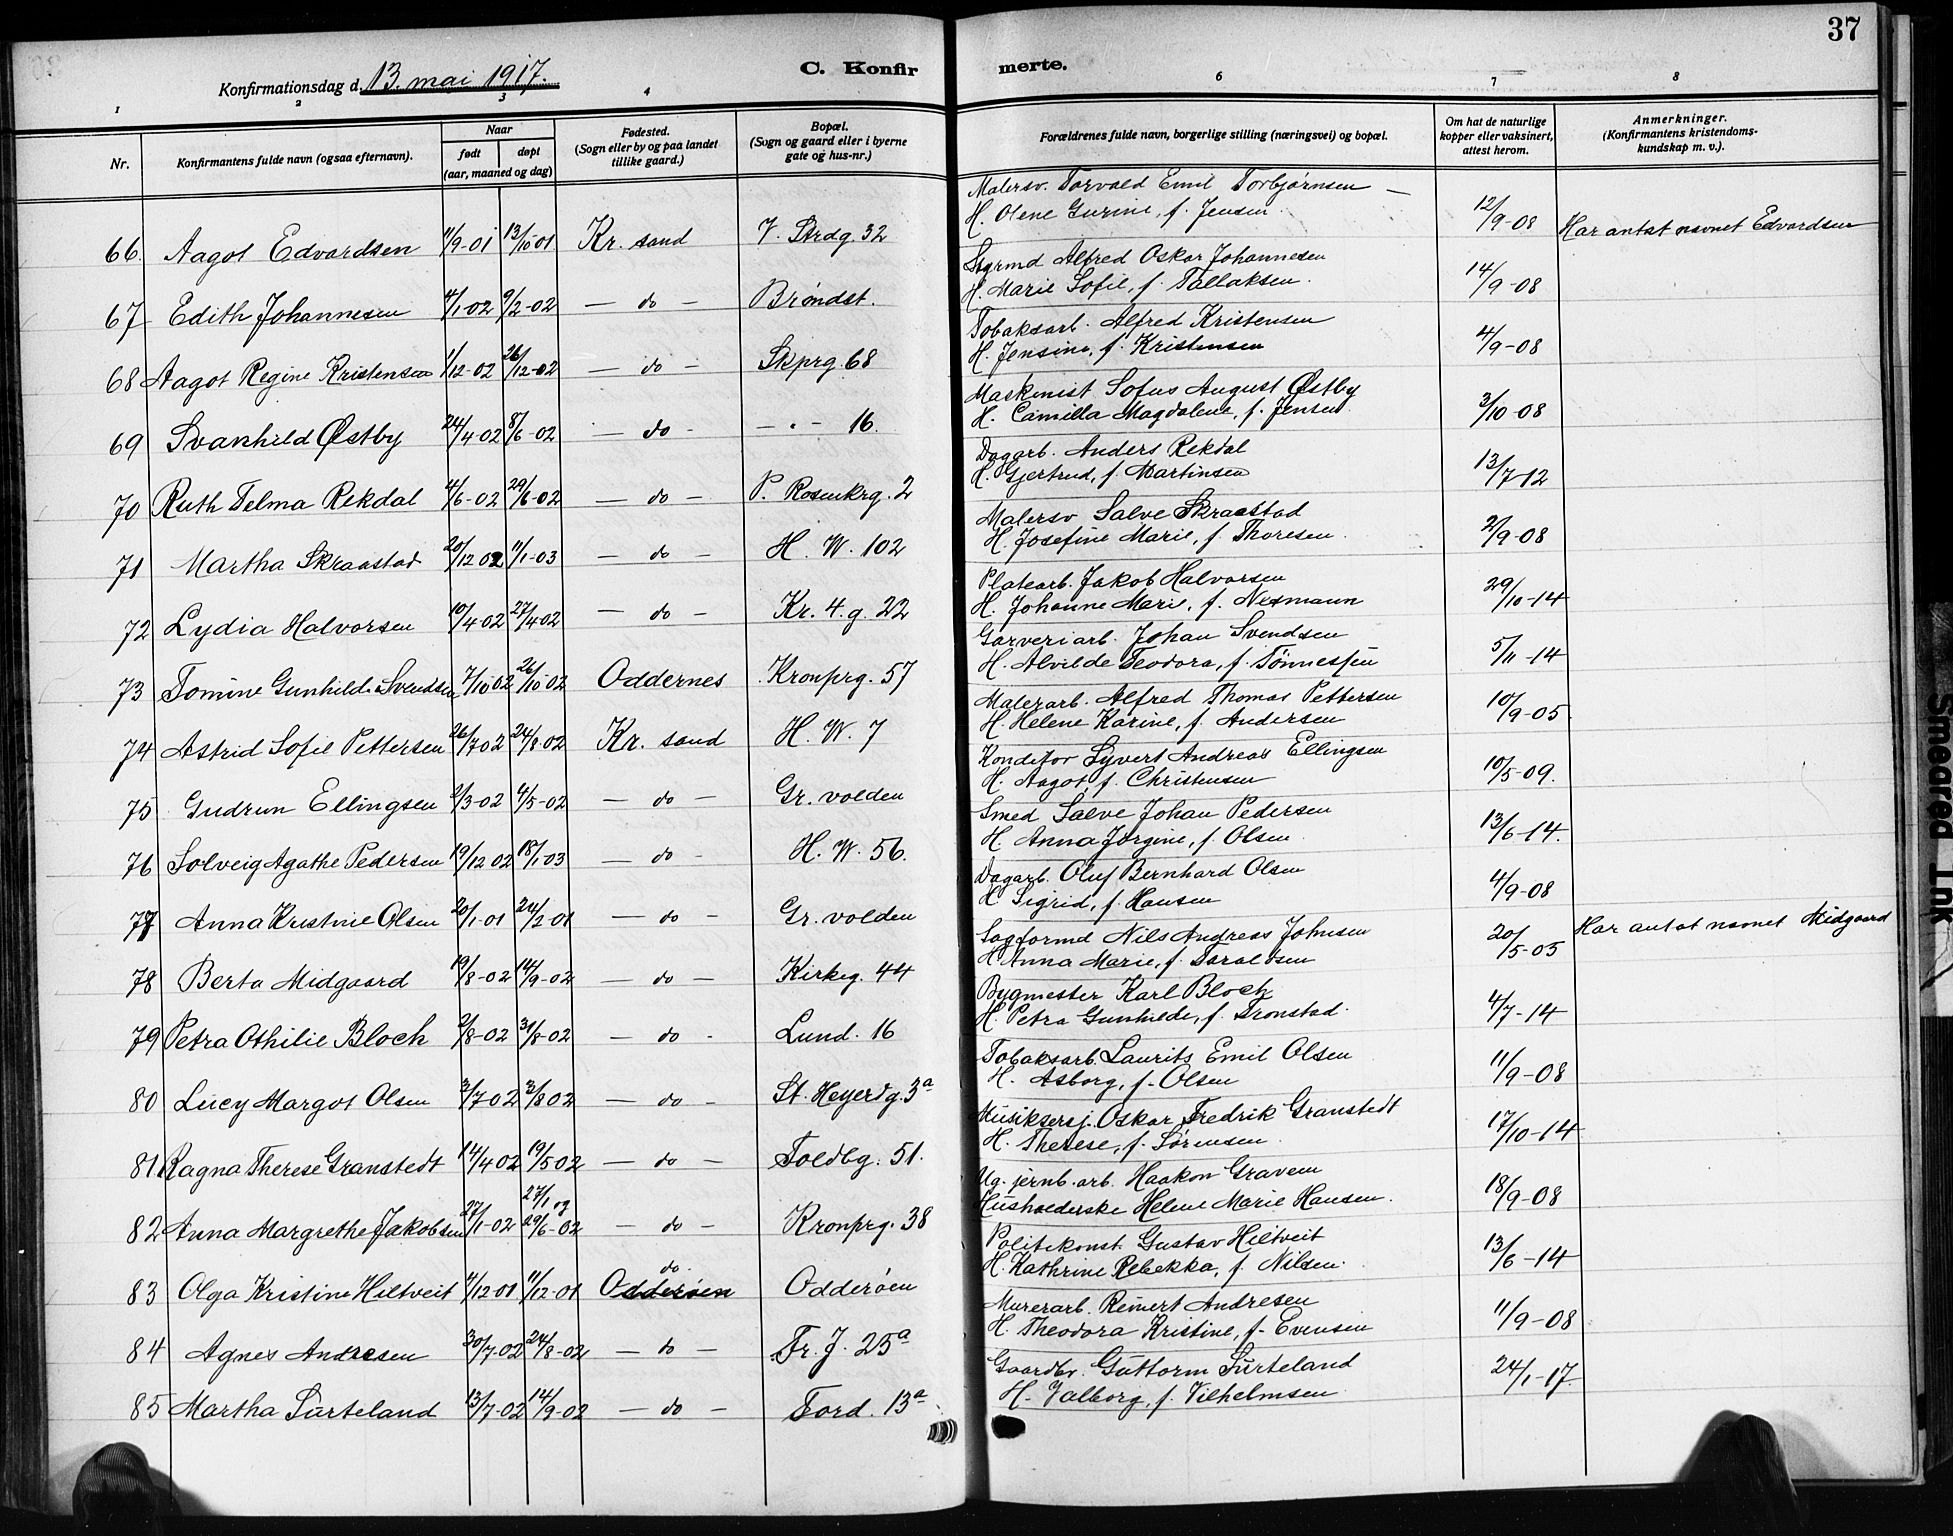 37
Konfirmationsdag d. 13. mai 1917.
C. Konfir merte.
1 2 3 4 6 7 8
Nr.
Konfirmantens fulde navn (ogsaa efternavn).
Naar
født
døpt
(aar, maaned og dag)
Fødested.
(Sogn eller by og paa landet
tillike gaard.)
Bopæl.
(Sogn og gaard eller i byerne
gate og hus-nr.)
Forældrenes fulde navn, borgerlige stilling (næringsvei) og bopæl.
Om hat de naturlige
kopper eller vaksinert,
attest herom.
Anmerkninger.
(Konfirmantens kristendoms-
kundskap m. v.).
Malersv. Torvald Emil Torbjørnsen —
H. Olene Gurine, f. Jensen.
66. Aagot Edvardsen 11/9-01 13/10-01 Kr. sand V. Strdg. 32 12/9-08 Har antat navnet Edvardsen
Alfred Oskar Johannesen
H. Marie Sofie, f. Tallaksen.
67 Edith Johannesen 4/1-02 9/2-02 — do — Brøndst. 14/9-08
Tobaksarb. Alfred Kristensen
H. Jensine, f. Kristensen
68 Aagot Regine Kristensen 1/12-02 26/12-02 — do — Skprg. 68 4/9-08
Maskinist Sofus August Østby
H. Camilla Magdalene, f. Jensen.
69 Svanhild Østby 24/4-02 8/6-02 — do - — „ — 16. 3/10-08
Dagarb. Anders Rekdal
H. Gjertrud, f. Martinsen
70 Ruth Telma Rekdal 4/6-02 29/6-02 — do — P. Rosenkrg. 2 13/7-12
Malersv Salve Skraastad
H. Josefine Marie, f. Thoresen.
71 Martha Skraastad 20/12 02 11/1-03 — do — H. W. 102 2/9-08
Platearb. Jakob Halvorsen
H. Johanne Marie, f. Nexmann
72 Lydia Halvorsen 10/4-02 27/4-02 — do — Kr. 4. g. 22 29/10-14
Garveriarb. Johan Svendsen
H. Alvilde Teodora, f. Tönnessen
73 Tomine Gunhilde Svendsen 7/10 02 26/10-02 Oddernes Kronprg. 57 5/11-14
Malerarb. Alfred Thomas Pettersen
H. Helene Karine, f. Andersen
74 Astrid Sofie Pettersen 26/7 02 24/8-02 Kr. sand H. W. 7 10/9-05
Konditor Syvert Andreas Ellingsen
H. Aagot, f. Christensen
75 Gudrun Ellingsen 2/3-02 4/5-02 — do — Gr. volden 10/5-09.
Smed Salve Johan Pedersen
H. Anna Jørgine, f. Olsen.
76 Solveig Agathe Pedersen 19/12 02 18/1 03 — do - H. W. 56. 13/6-14.
Dagarb. Oluf Bernhard Olsen
H Sigrid, f. Hansen
77 Anna Kristine Olsen 20/1-01 24/2-01 — do — Gr. volden 4/9-08
Sagformd Nils Andreas Johnsen
H Anna Marie, f. Daraldsen
78 Berta Midgaard 19/8-02 14/9-02 — do — Kirkeg. 44 20/5-05 Har antat navnet Midgaard
Bygmester Karl Bloch
H. Petra Gunhilde, f. Tronstad.
79 Petra Othilie Bloch 2/8-02 31/8-02 — do - Lund. 16 4/7-14
Tobaksarb. Laurits Emil Olsen
H. Asborg, f. Olsen
80 Lucy Margot Olsen 3/7-02 3/8 02 — do - St. Heyerdg. 3a 11/9-08
Musiksersj. Oskar Fredrik Granstedt
H. Therese, f. Sörensen.
81 Ragna Therese Granstedt 14/4 02 19/5 02 — do — Toldbg. 51. 17/10-14
Ug. jernb. arb. Haakon Gravem
Husholderske Helene Marie Hansen.
82 Anna Margrethe Jakobsen 27/1-02 29/6-02 — do — Kronprg. 38 18/9-08
Politikonst. Gustav Hiltveit
H. Kathrine Rebekka, f. Nilsen.
83 Olga Kristine Hiltveit 4/12-01 11/12-01 Odderöen do. Odderöen 13/6-14
Murerarb. Reinert Andresen
H. Theodora Kristine, f. Evensen
84 Agnes Andresen 30/7-02 24/8-02 — do — Fr. J. 25a 11/9-08
Gaardbr. Guttorm Surteland
H. Valborg, f. Vilhelmsen
85 Martha Surteland 13/7-02 14/9-02 — do — Tord. 13a 24/1-17.
Smeared Ink